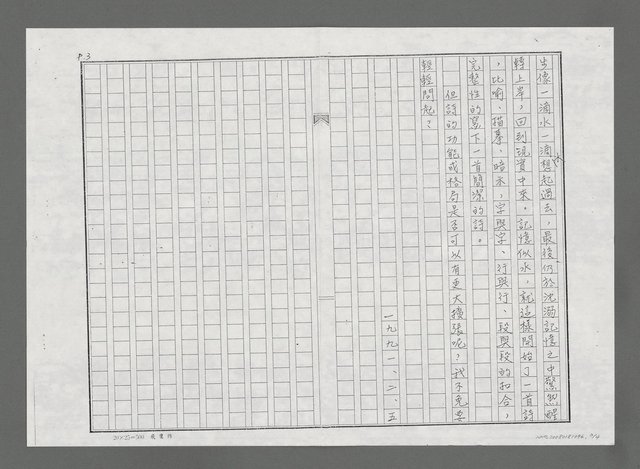 P3
步像一滴水一滴想起過去，最後仍於沈溺記憶之中驚然醒
轉上岸，回到現實中來。記憶似水，就這樣開始了一首詩
，比喻、描摹、暗示，字與字、行與行、段與段的扣合，
完整性的寫下一首簡潔的詩。
但詩的功能或格局是否可以有更大擴張呢？我不免要
輕輕問起？
一九九一、二、五
20×25=500